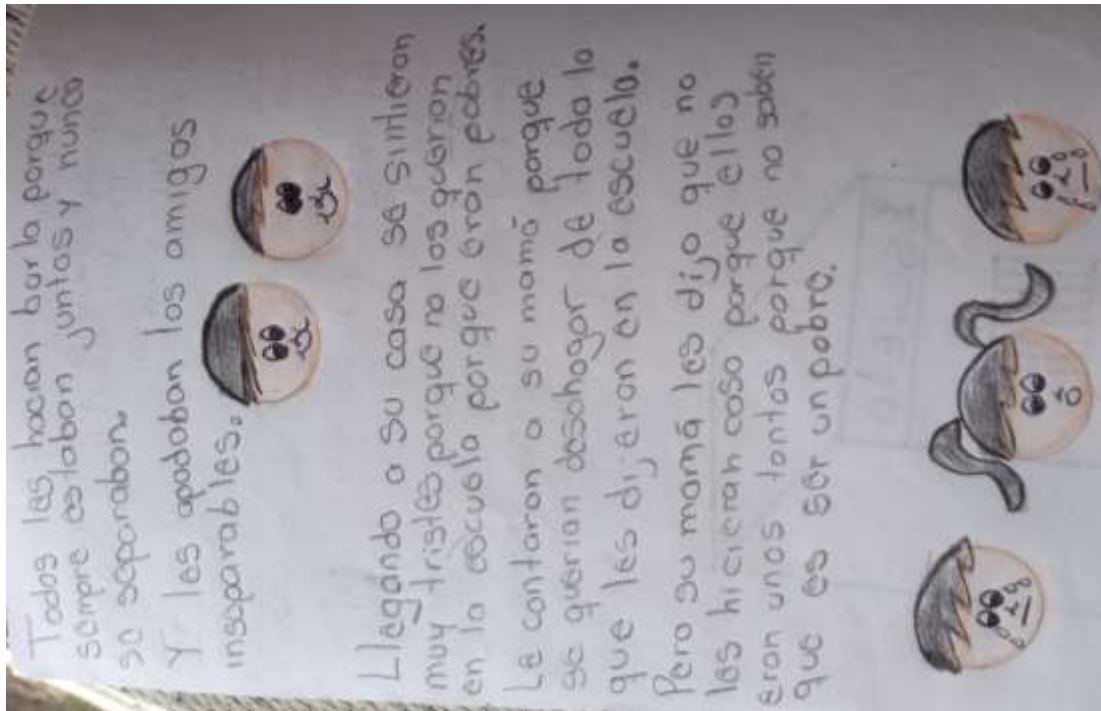 Todos les hacian burla porque
siempre estaban juntos y nunca
se separaban.
Y les apodaban los amigos
inseparables.
Llegando a su casa se sintieron
muy tristes porque no los querian
en la escuela porque eran pobres.
Le contaron a su mamá porque
se querian desahogar de todo lo
que les dijeron en la escuela.
Pero su mamá les dijo que no
les hicieran caso porque ellos
eran unos tontos porque no saben
que es ser un pobre.